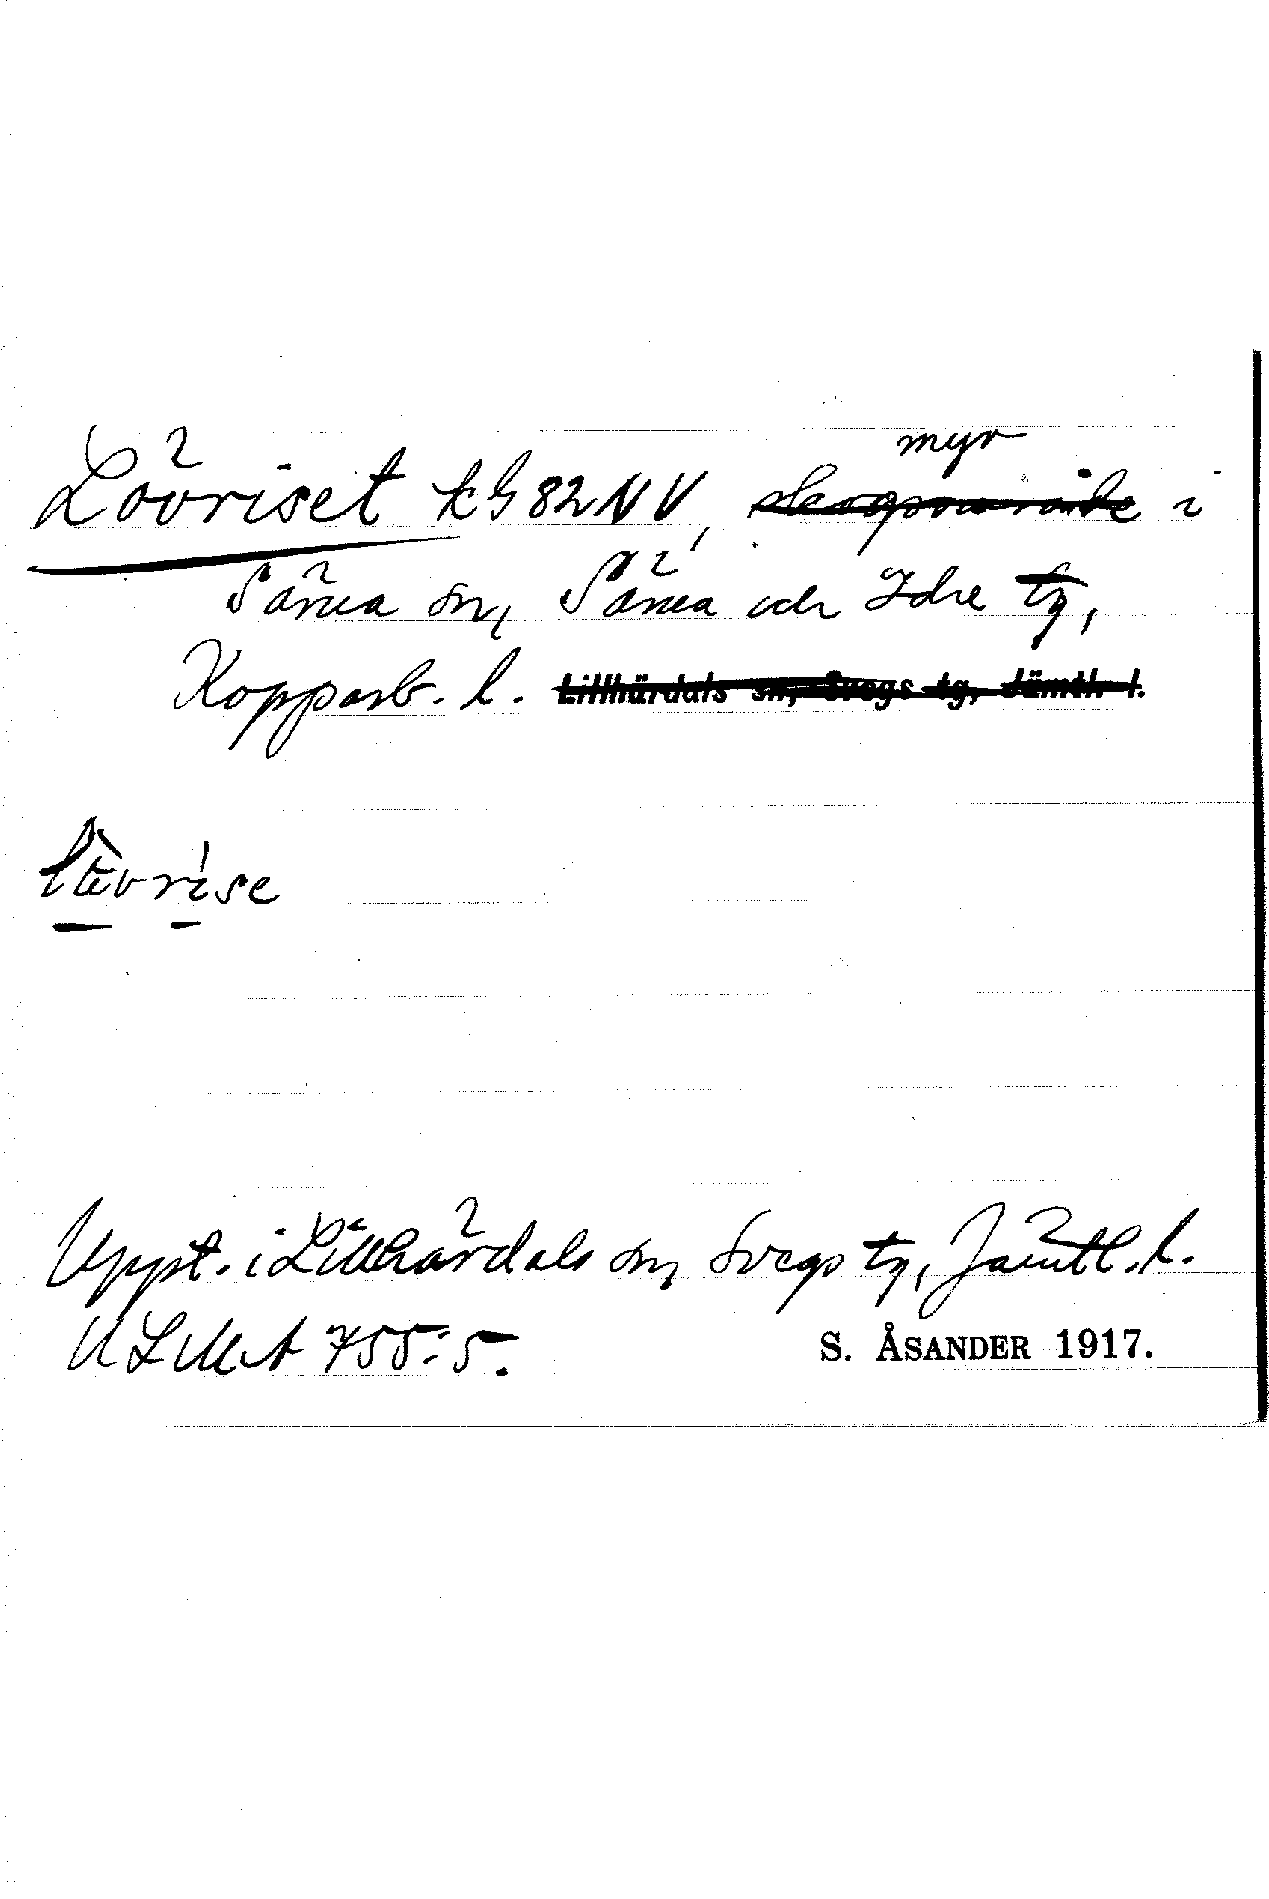 Lövriset kG82NV, myr i
Särna sn, Särna och Idre tg,
Kopparb. l. Lillhärdals sn, Svegs tg, Jämtl. l.
Uppt. i Lillhärdals sn, Svegs tg, Jämtl. l.
ULMA 755:5.
S. ÅSANDER 1917.